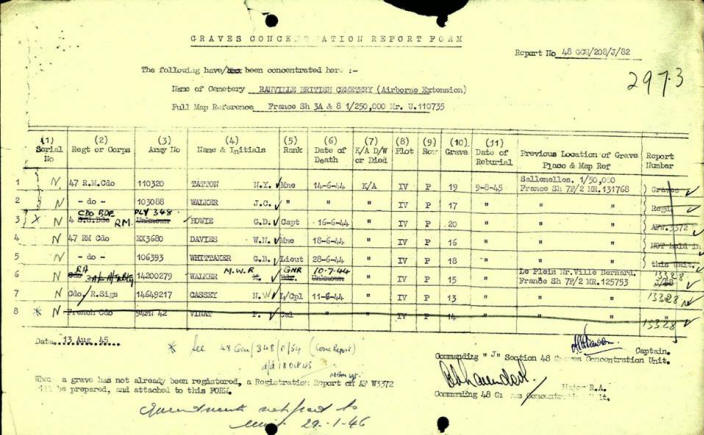 GRAVES CONCENTRATION REPORT FORM
Report No 48 GCU/208/J/82
2973
The following have/ been concentrated here :-
Name of Cemetery RANVILLE BRITISH CEMETERY (Airborne Extension)
Full Map Reference France Sh 3A & 8 1/250,000 Mr. U.110735
(1) Serial No (2) Regt or Corps (3) Army No (4) Name & Initials (5) Rank (6) Date of Death (7) K/A D/W or Died (8) Plot (9) Row (10) Grave (11) Date of Reburial Previous Location of Grave Place & Map Ref Report Number
1 N 47 R.M.Cdo 110320 N.Y. Mne 14-6-44 K/A IV P 19 9-8-45 Sallenelles, 1/50,000 France Sh 7F/2 MR.131768 Graves
2 N - do - 103088 WALKER J.C. " " " IV P 17 " " Regd
3 X CDO BDE R.M. PLY 348 HOWIE G.D. Capt 16-6-44 " IV P 20 " " AFW.3372
4 N 47 RM Cdo EX3680 DAVIES Mne 18-6-44 " IV P 16 " " NOT held in
5 N - do - 106393 WHITTAKER G.R. Lieut 28-6-44 " IV P 18 " " this unit.
6 N RA 14200279 WALKER M.W.R GNR 10.7.44 " IV P 15 " Le Plein Mr.Ville Bernard. France Sh 7F/2 MR.125753 13328
7 N Cdo/R.Sigs 14649217 CASSEY L/Cpl 11-6-44 " IV P 13 " " 13328
8 * N French Cdo 42 VINAT P. " " IV P 14 " " 13328
Date. 13 Aug 45.
* See 48 GCU/348/
Captain.
Commanding "J" Section 48 Graves Concentration Unit.
When a grave has not already been registered, a Registration Report on AF W3372
will be prepared, and attached to this FORM.
Major R.A.
Commanding 48 Graves Concentration Unit.
Amendments notified to
29-1-46